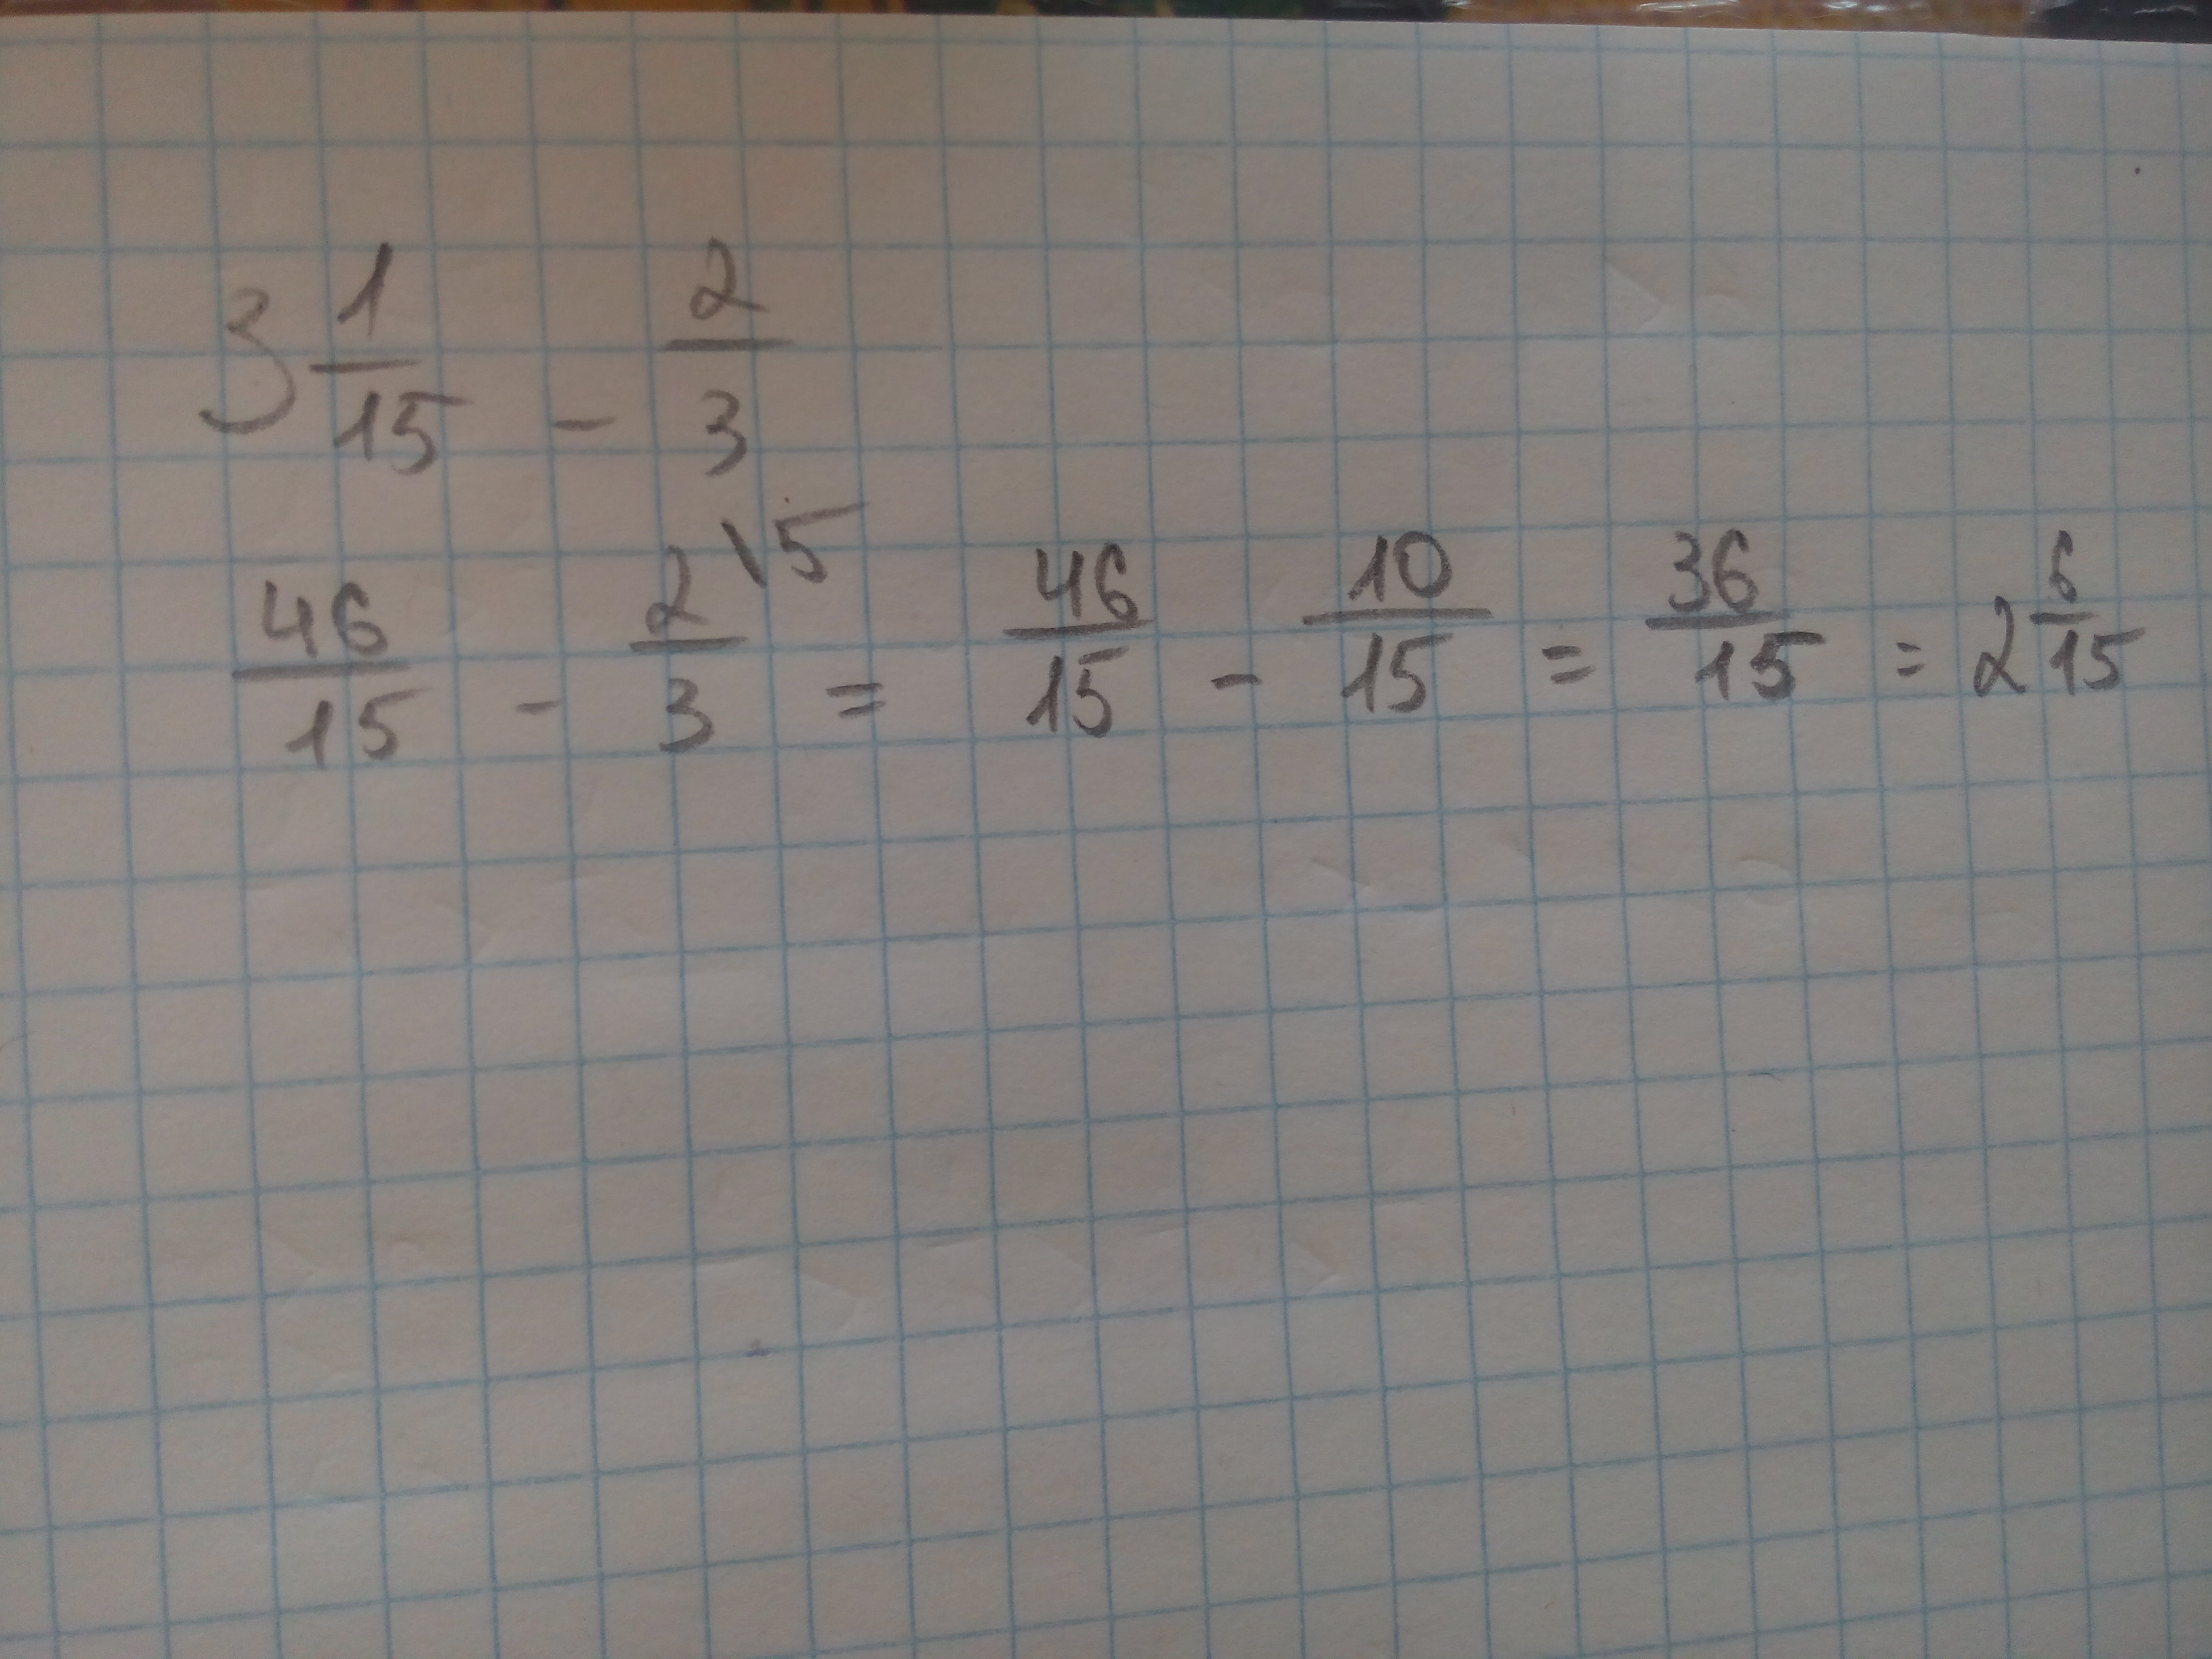 3 1/15 - 2/3
46/15 - 2\5/3 = 46/15 - 10/15 = 36/15 = 2 6/15